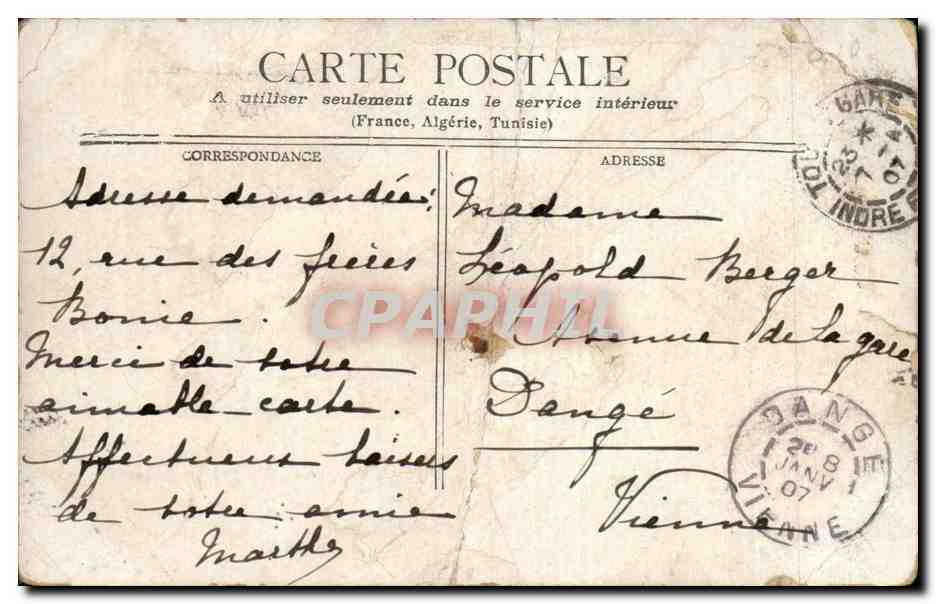 CARTE POSTALE
A utiliser seulement dans le service intérieur
(France, Algérie, Tunisie)
CORRESPONDANCE
Adresse demandée:
12, rue des frères
Bonie.
Merci de votre
aimable carte.
Affectueux baisers
de votre amie
Marthe
ADRESSE
Madame
Léopold Berger
Avenue de la gare
Dangé
Vienne
GARE
INDRE
23
07
DANGE
8
JANV
07
VIENNE
CPAPHIL